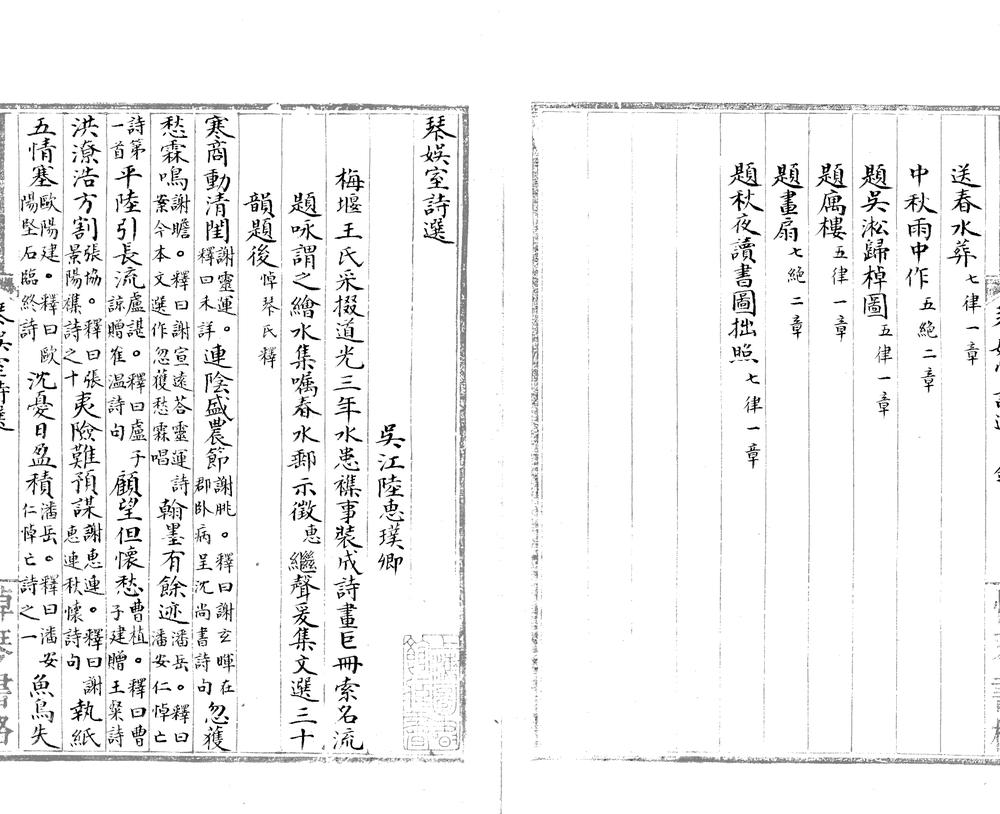 送春水葬七律一章
中秋雨中作五絕二章
題吳淞歸棹圖五律一章
題寓樓五律一章
題畫扇七絕二章
題秋夜讀書圖拙照七律一章
琴娛室詩選
吳江陸惠璞卿
梅堰王氏采掇道光三年水患襍事裝成詩畫巨冊索名流
題咏謂之繪水集囑春水郵示徵惠繼聲爰集文選三十
韻題後悼琴氏釋
寒商動清閨謝靈運。釋曰未詳連陰盛農節謝朓。釋曰謝玄暉在郡卧病呈沈尚書詩句忽獲
愁霖鳴謝瞻。釋曰謝宣遠荅靈運詩案今本文選作忽獲愁霖唱翰墨有餘迹潘岳。釋曰潘安仁悼亡
詩第一首平陸引長流盧諶。釋曰盧子諒贈崔温詩句顧望但懷愁曹植。釋曰曹子建贈王粲詩
洪潦浩方割張協。釋曰張景陽襍詩之十夷險難預謀謝惠連。釋曰謝惠連秋懷詩句執紙
五情塞歐陽建。釋曰歐陽堅石臨終詩沈憂日盈積潘岳。釋曰潘安仁悼亡詩之一魚鳥失